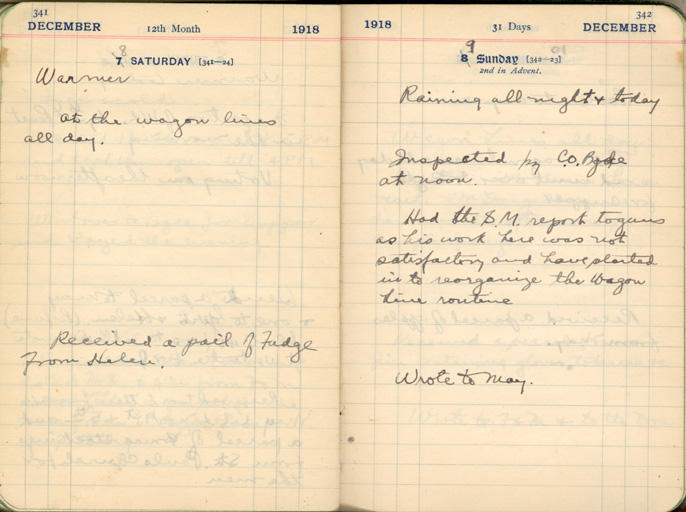 341
DECEMBER 12th Month 1918
8
7 SATURDAY [341—24]
Warmer
at the wagon lines
all day.
Received a pail of Fudge
from Helen.
342
1918 31 Days DECEMBER
9
8 Sunday [342—23]
2nd in Advent.
Raining all night & today
Inspected by C.O. Bgde
at noon.
Had the S.M. report to guns
as his work here was not
satisfactory and have started
in to reorganize the Wagon
line routine
Wrote to May.